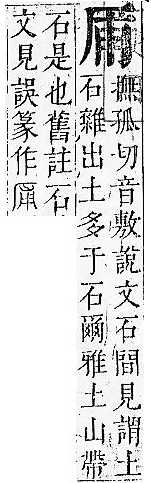 㕊
撫孤切音敷說文石間見謂土
石雜出土多于石爾雅土山帶
石是也舊註石
文見誤篆作㕊